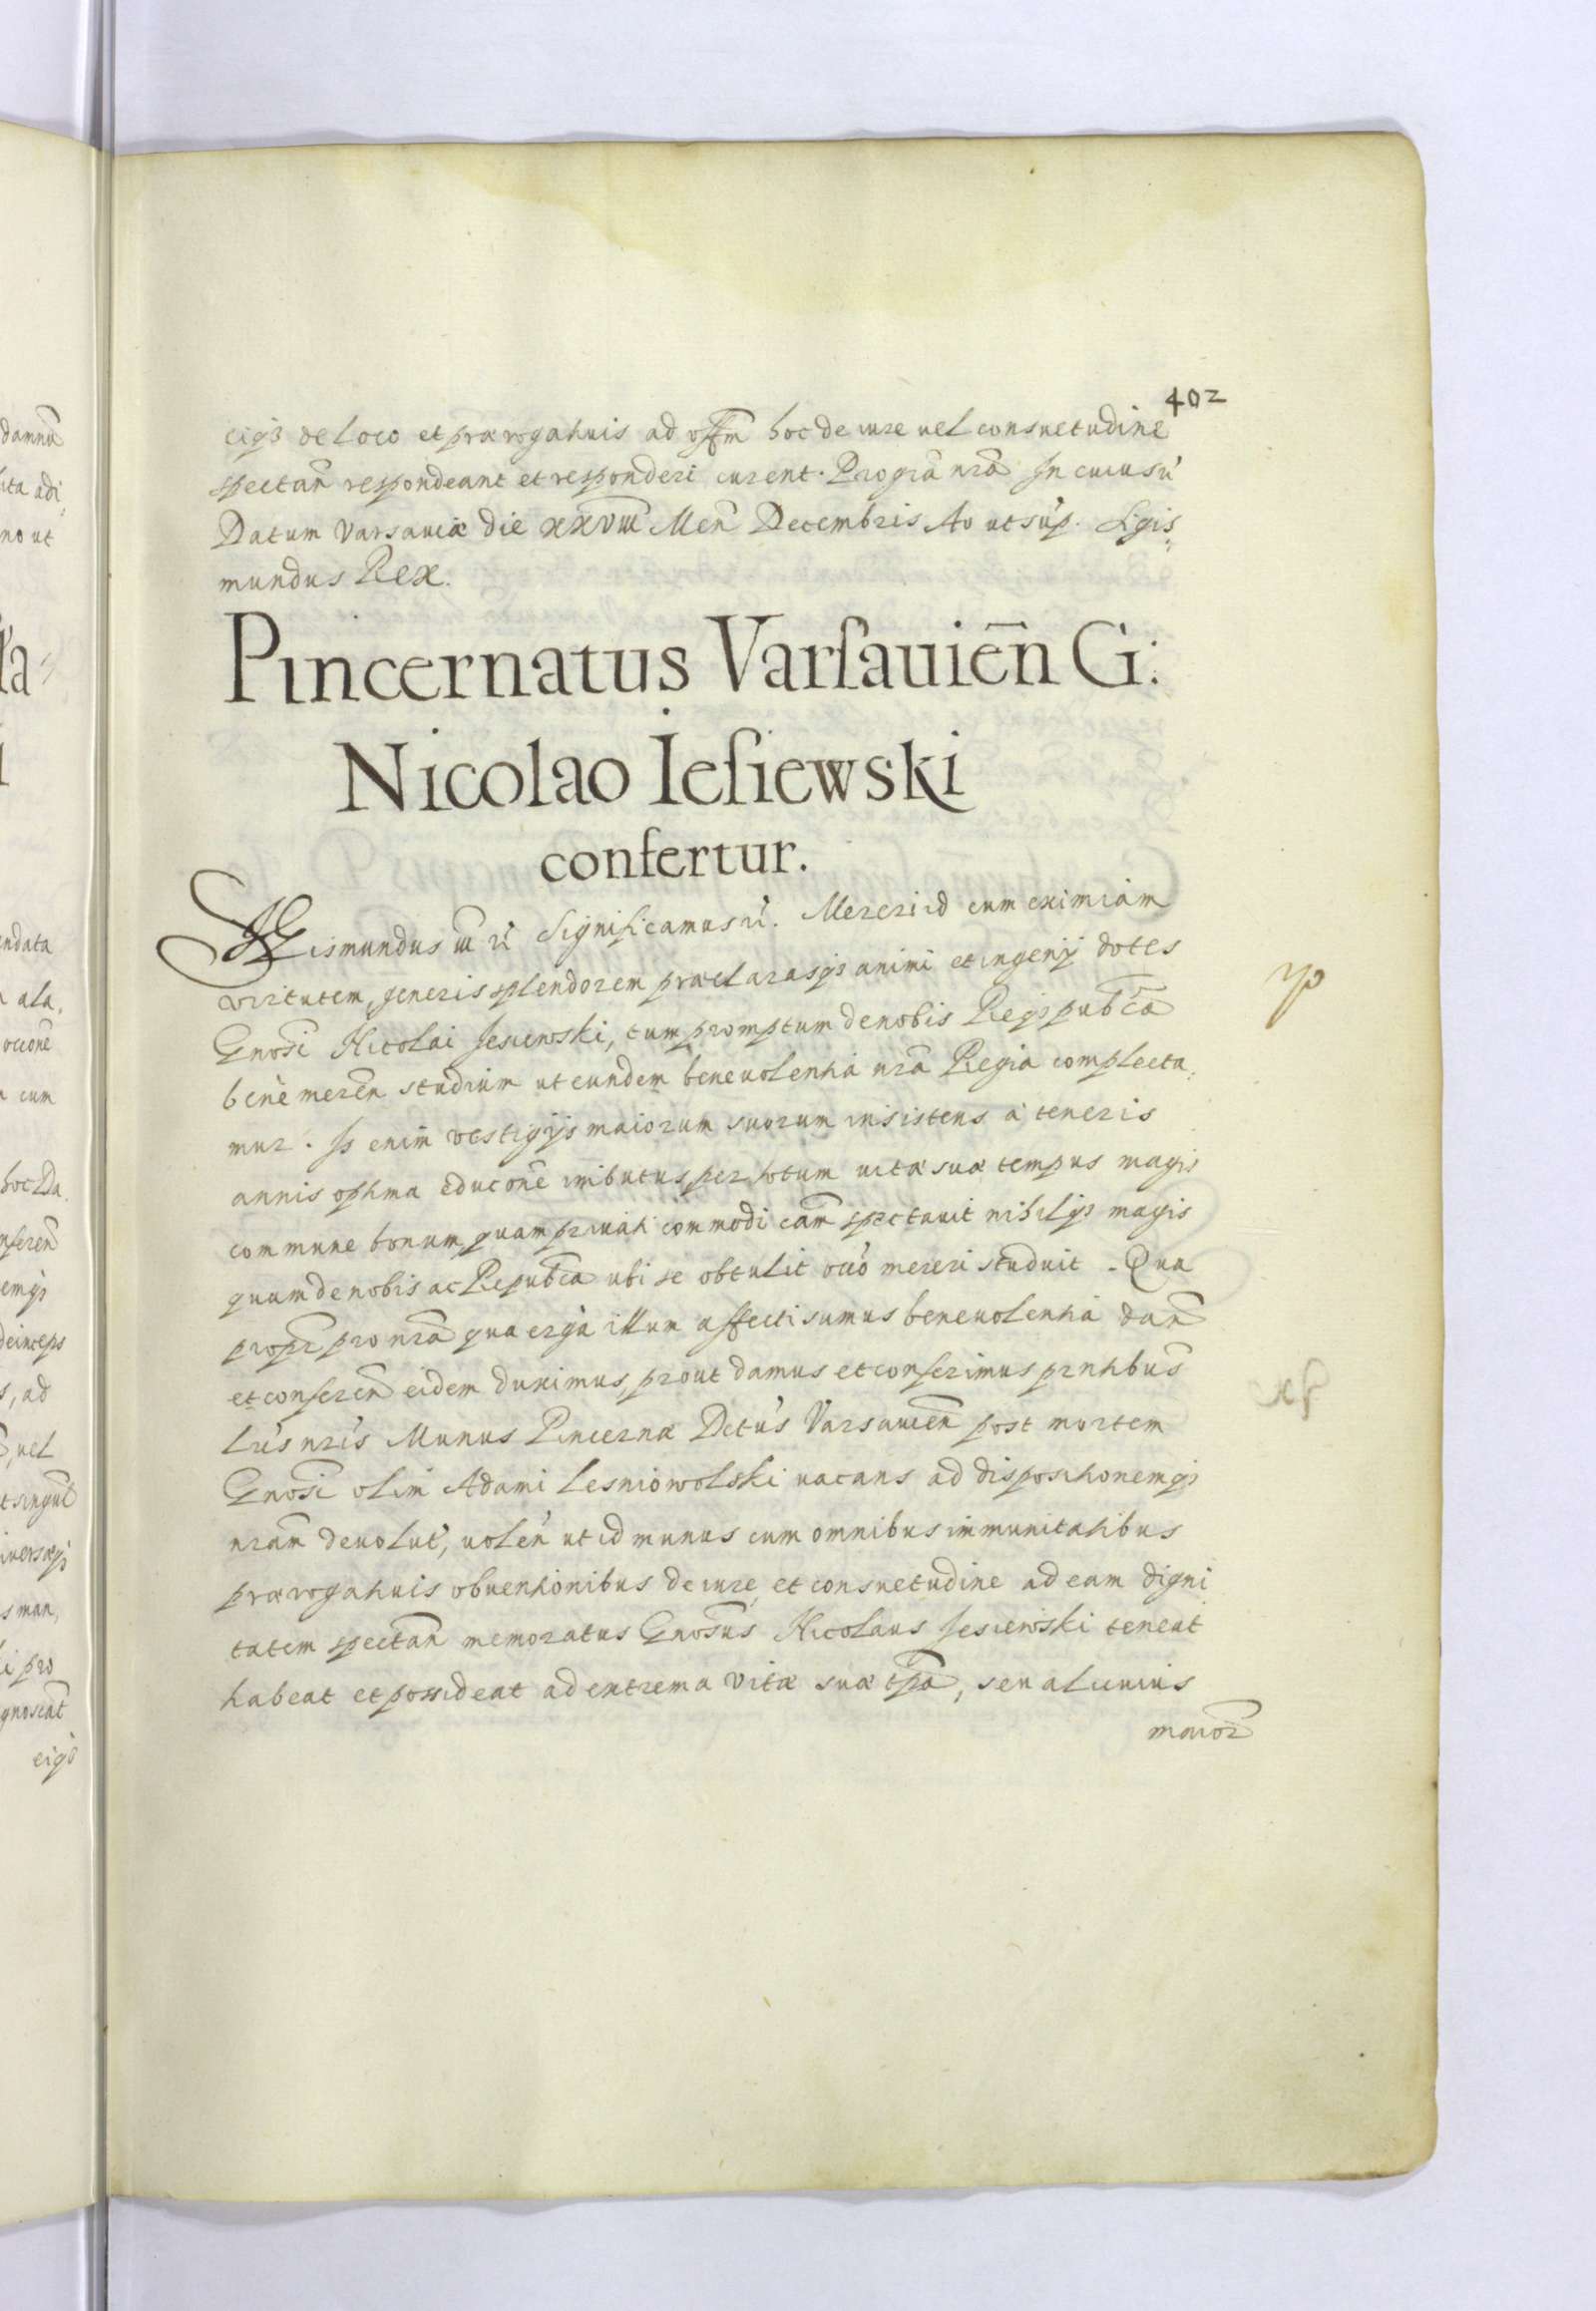 402
eiq3 de loco et prærogatiuis ad offm hoc de iure uel consuetudine
spectan̄ respondeant et responderi curent. Pro gr̃a nr̃a In cuius rı̃
Datum Varsauiæ die xxviii Men̄ Decembris Ao ut sup. Sigis,
mundus Rex.
Pincernatus Varsauien̄ G:
Nicolao Iesiewski
confertur.
SIGismundus iii rı̃ Significamus rı̃. Mereri id cum eximiam
virtutem, generis splendorem præclarasq3 animi et ingenij dotes
Gnosi Nicolai Iesiewski, tum promptum de nobis Req3 pubca
benè meren̄ studium ut eundem beneuolentia nr̃a Regia complecta,
mur. Is enim vestigijs maiorum suorum insistens à teneris
annis optima educone imbutus per totum uitæ suæ tempus magis
commune bonum quam priuati commodi cam̃ spectauit nihilq3 magis
quam de nobis ac Repubca ubi se obtulit occõ mereri studuit. Qua
propr pro nr̃a qua erga illum affecti sumus beneuolentia dan̄
et conferen̄ eidem duximus, prout damus et conferimus prntibus
lris nris Munus Pincernæ Dctus Varsauien̄ post mortem
Gnosi olim Adami Lesniowolski uacans ad dispositionemq3
nram deuolut, uolen̄ ut id munus cum omnibus immunitatibus
prærogatiuis obuentionibus de iure et consuetudine ad eam digni
tatem spectan̄ memoratus Gnosus Nicolaus Iesiewski teneat
habeat et possideat ad extrema vitæ suæ tpa, seu alicuius
maior̃